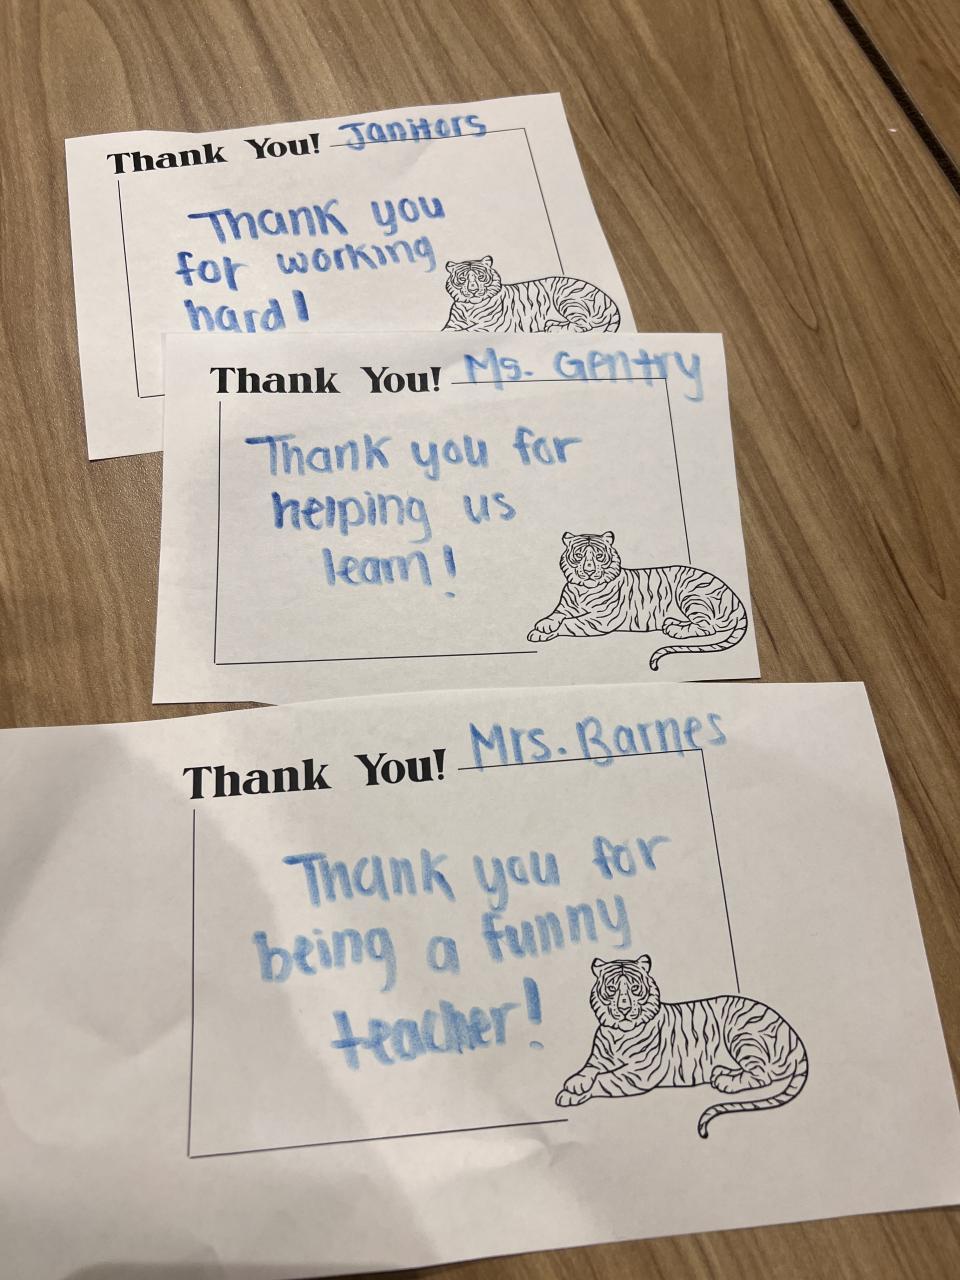 Thank You! Janitors
Thank you
for working
hard!
Thank You! Ms. Gentry
Thank you for
helping us
learn!
Thank You! Mrs. Barnes
Thank you for
being a funny
teacher!